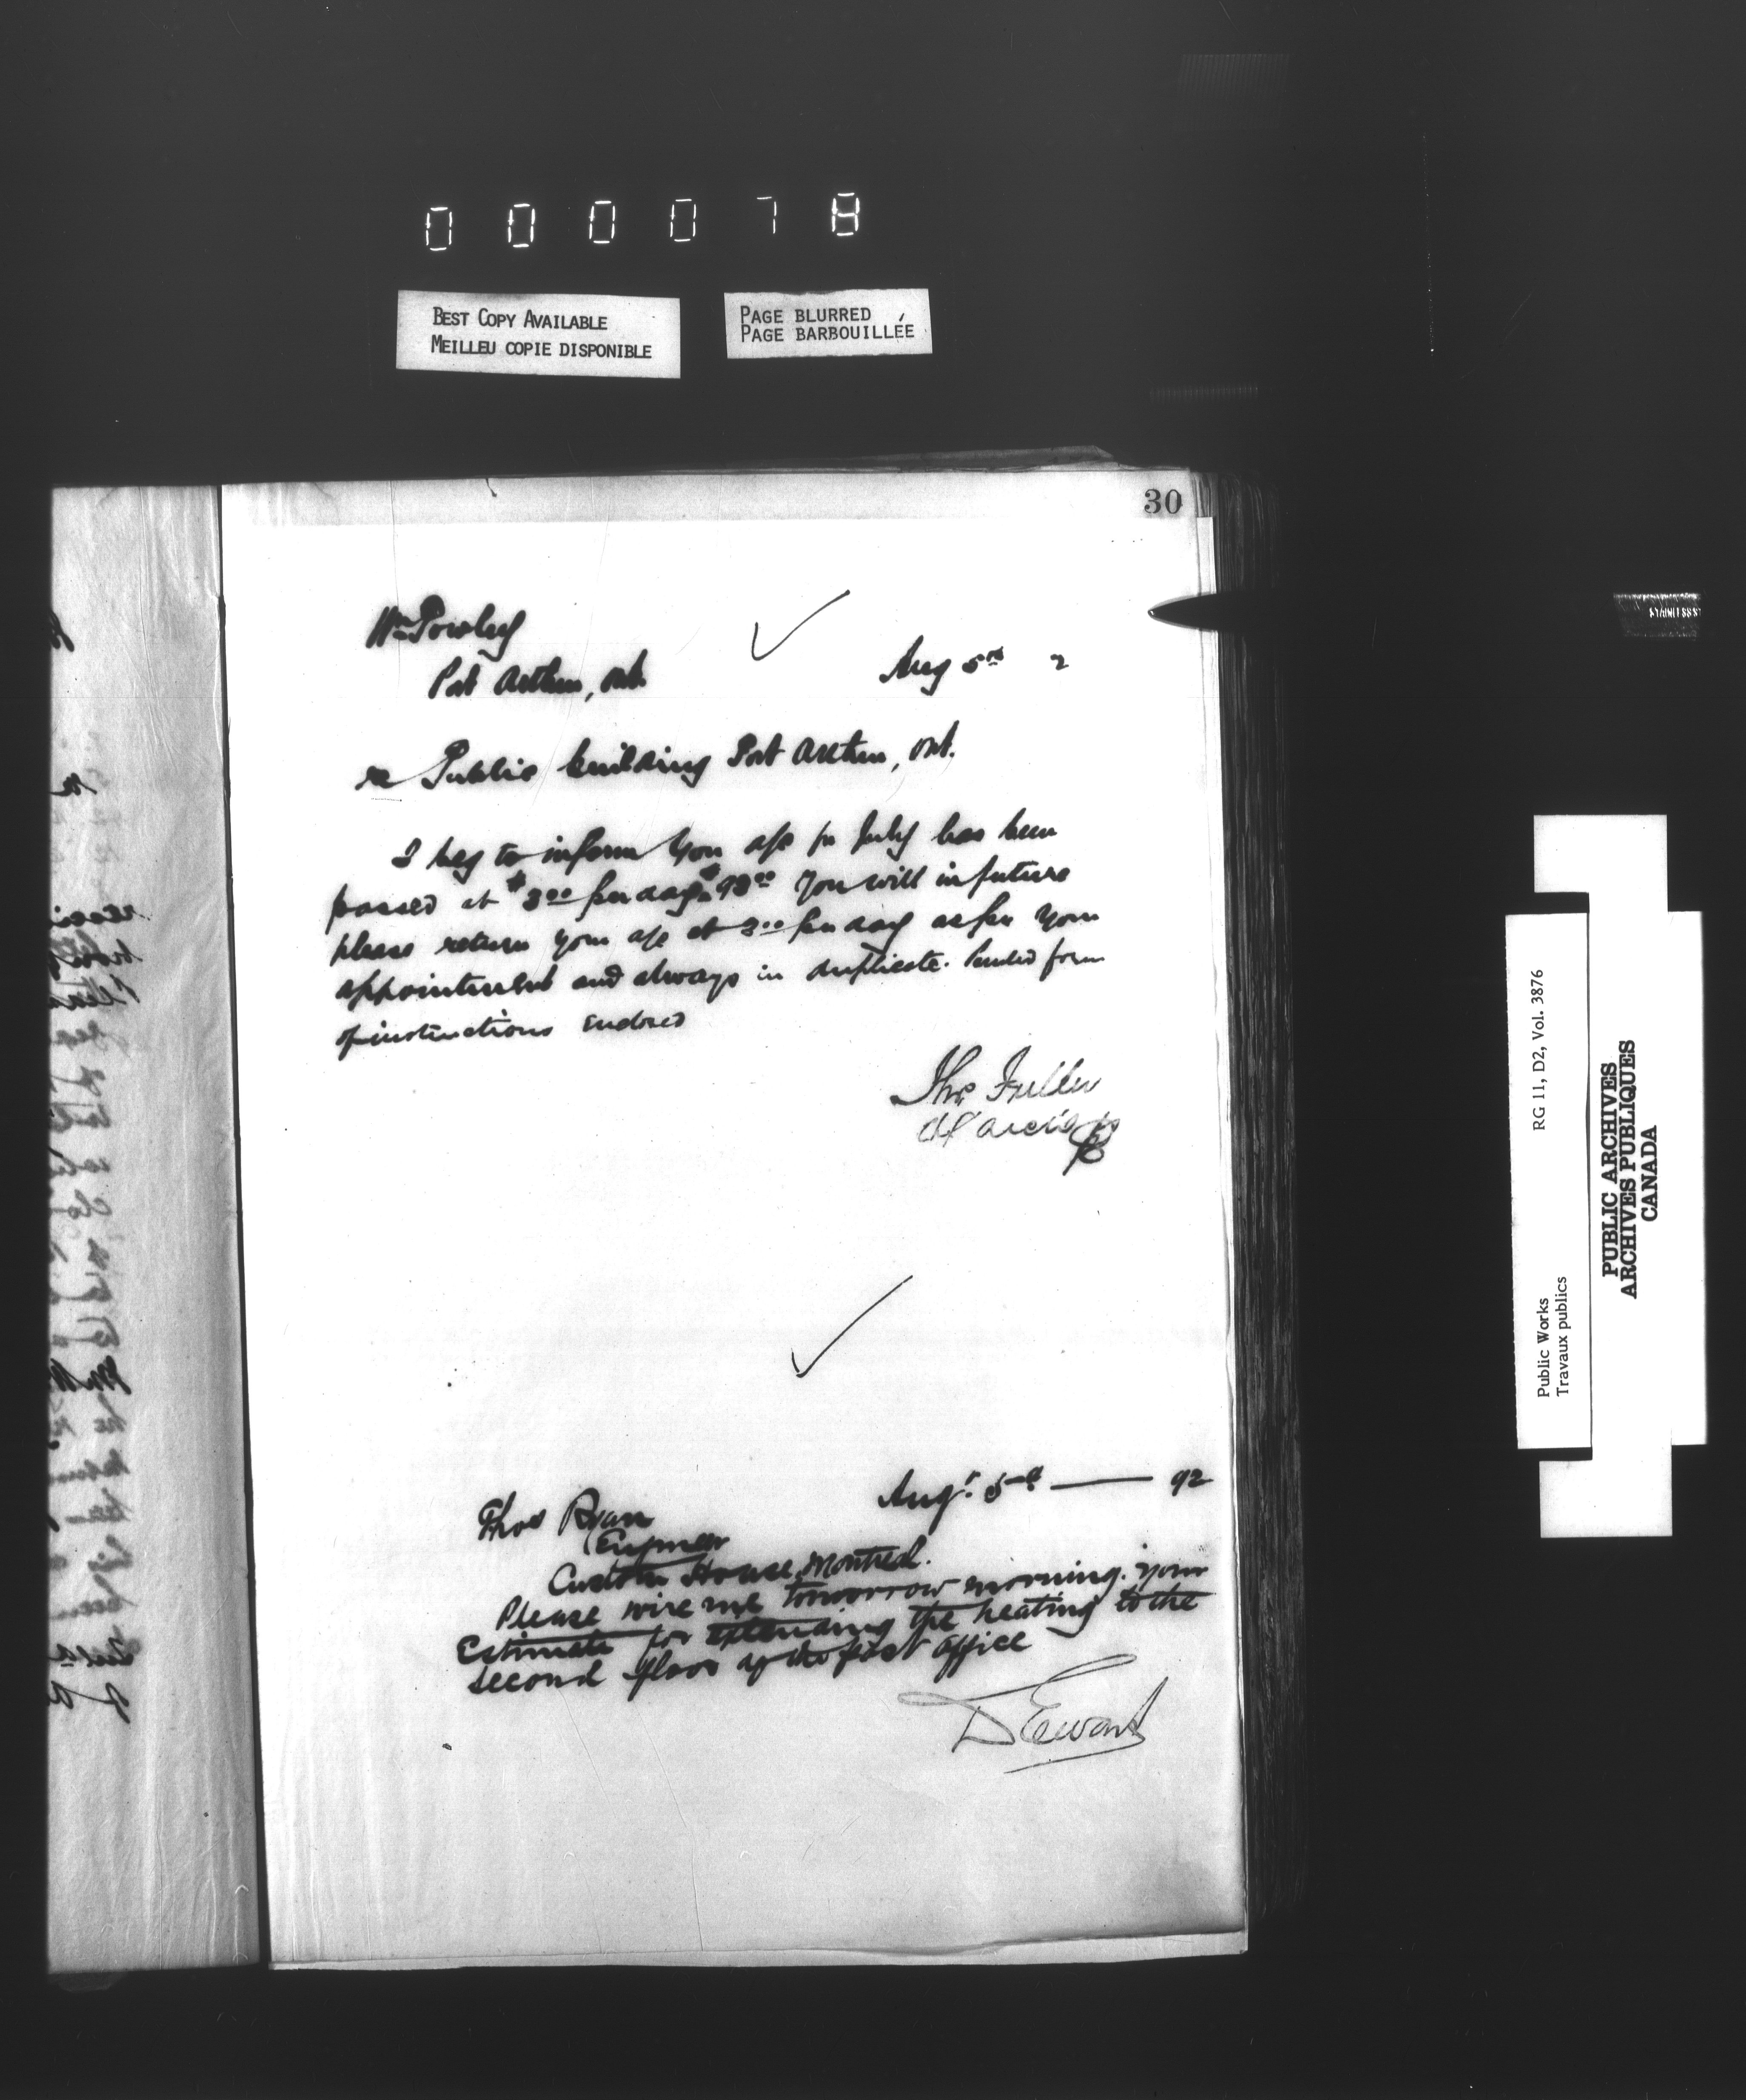 000078
BEST COPY AVAILABLE
MEILLEU COPIE DISPONIBLE
PAGE BLURRED
PAGE BARBOUILLÉE
30
Wm Powley
Port Arthur, Ont.
Aug 5th 2
re Public building Port Arthur, Ont.
I beg to inform you a/c for July has been
passed at $3.00 per day = $93.00 You will in future
please return your a/c at 3.00 per day as per your
appointment and always in duplicate. Printed form
of instructions endorsed
Thos Fuller
Augt 5th — 92
Thos Ryan
Engineer
Custom House, Montreal.
Please wire me tomorrow morning. your
Estimate for extending the heating to the
second floor of the post office
D Ewart
RG 11, D2, Vol. 3876
Public Works
Travaux publics
PUBLIC ARCHIVES
ARCHIVES PUBLIQUES
CANADA